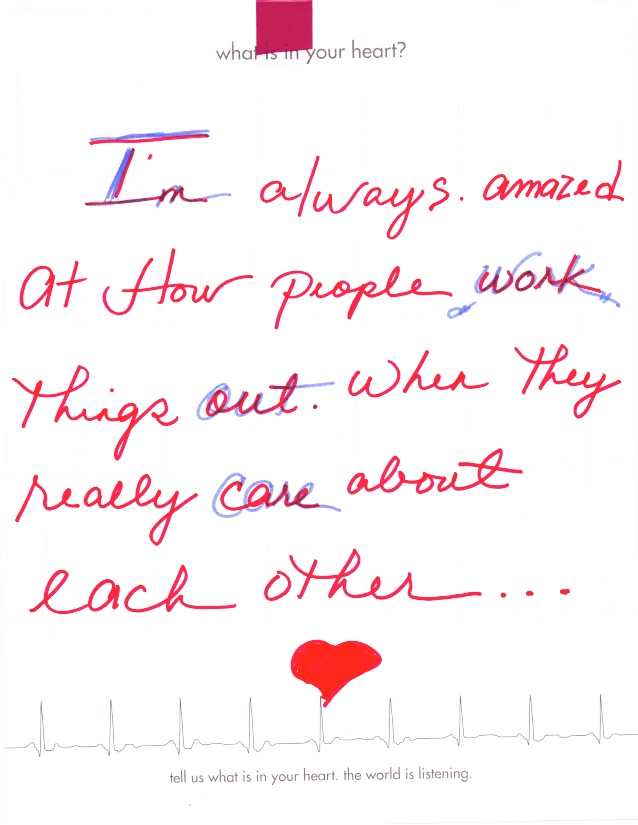 what is in your heart?
I'm always. amazed
at How people work
things out. When they
really care about
each other...
tell us what is in your heart. the world is listening.